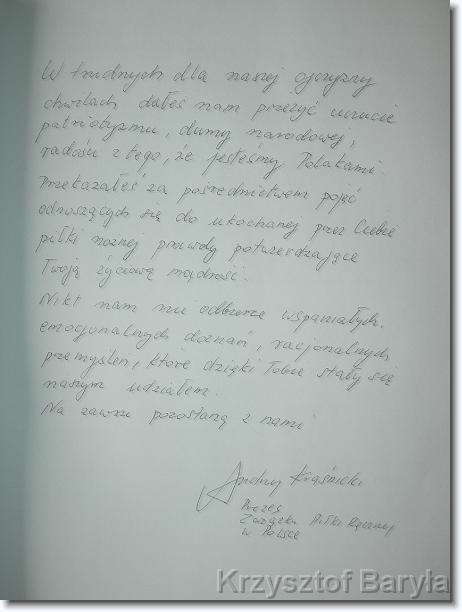 W trudnych dla naszej ojczyzny
chwilach dałeś nam przeżyć uczucie
patriotyzmu, dumy narodowej,
radości z tego, że jesteśmy Polakami.
Przekazałeś za pośrednictwem pojęć
odnoszących się do ukochanej przez Ciebie
piłki nożnej prawdy potwierdzające
Twoją życiową mądrość.
Nikt nam nie odbierze wspaniałych,
emocjonalnych doznań, racjonalnych
przemyśleń, które dzięki Tobie stały się
naszym udziałem.
Na zawsze pozostaną z nami
Andrzej Kraśnicki
Prezes
Związku Piłki Ręcznej
w Polsce
Krzysztof Baryła